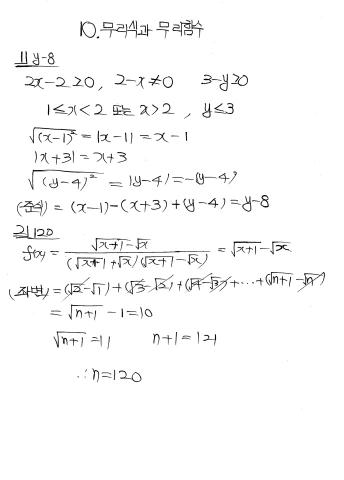 10. 무리식과 무리함수
1] y-8
2x-2≥0, 2-x≠0 3-y≥0
1≤x<2 또는 x>2, y≤3
√(x-1)² = |x-1| = x-1
|x+3| = x+3
√(y-4)² = |y-4| = -(y-4)
(준식) = (x-1)-(x+3)+(y-4) = y-8
2] 120
f(x) = (√x+1 - √x)/((√x+1 + √x)(√x+1 - √x)) = √x+1 - √x
(좌변) = (√2-√1)+(√3-√2)+(√4-√3)+…+(√n+1 - √n)
= √n+1 - 1 = 10
√n+1 = 11 n+1 = 121
∴ n=120